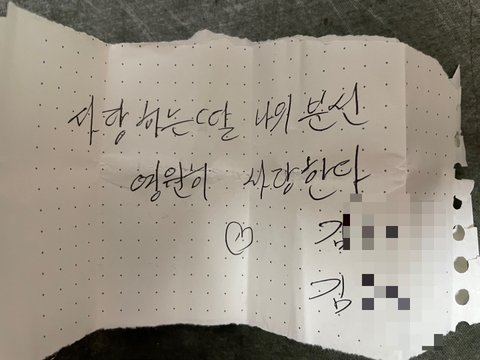 사랑하는 딸 나의 분신
영원히 사랑한다
김
김